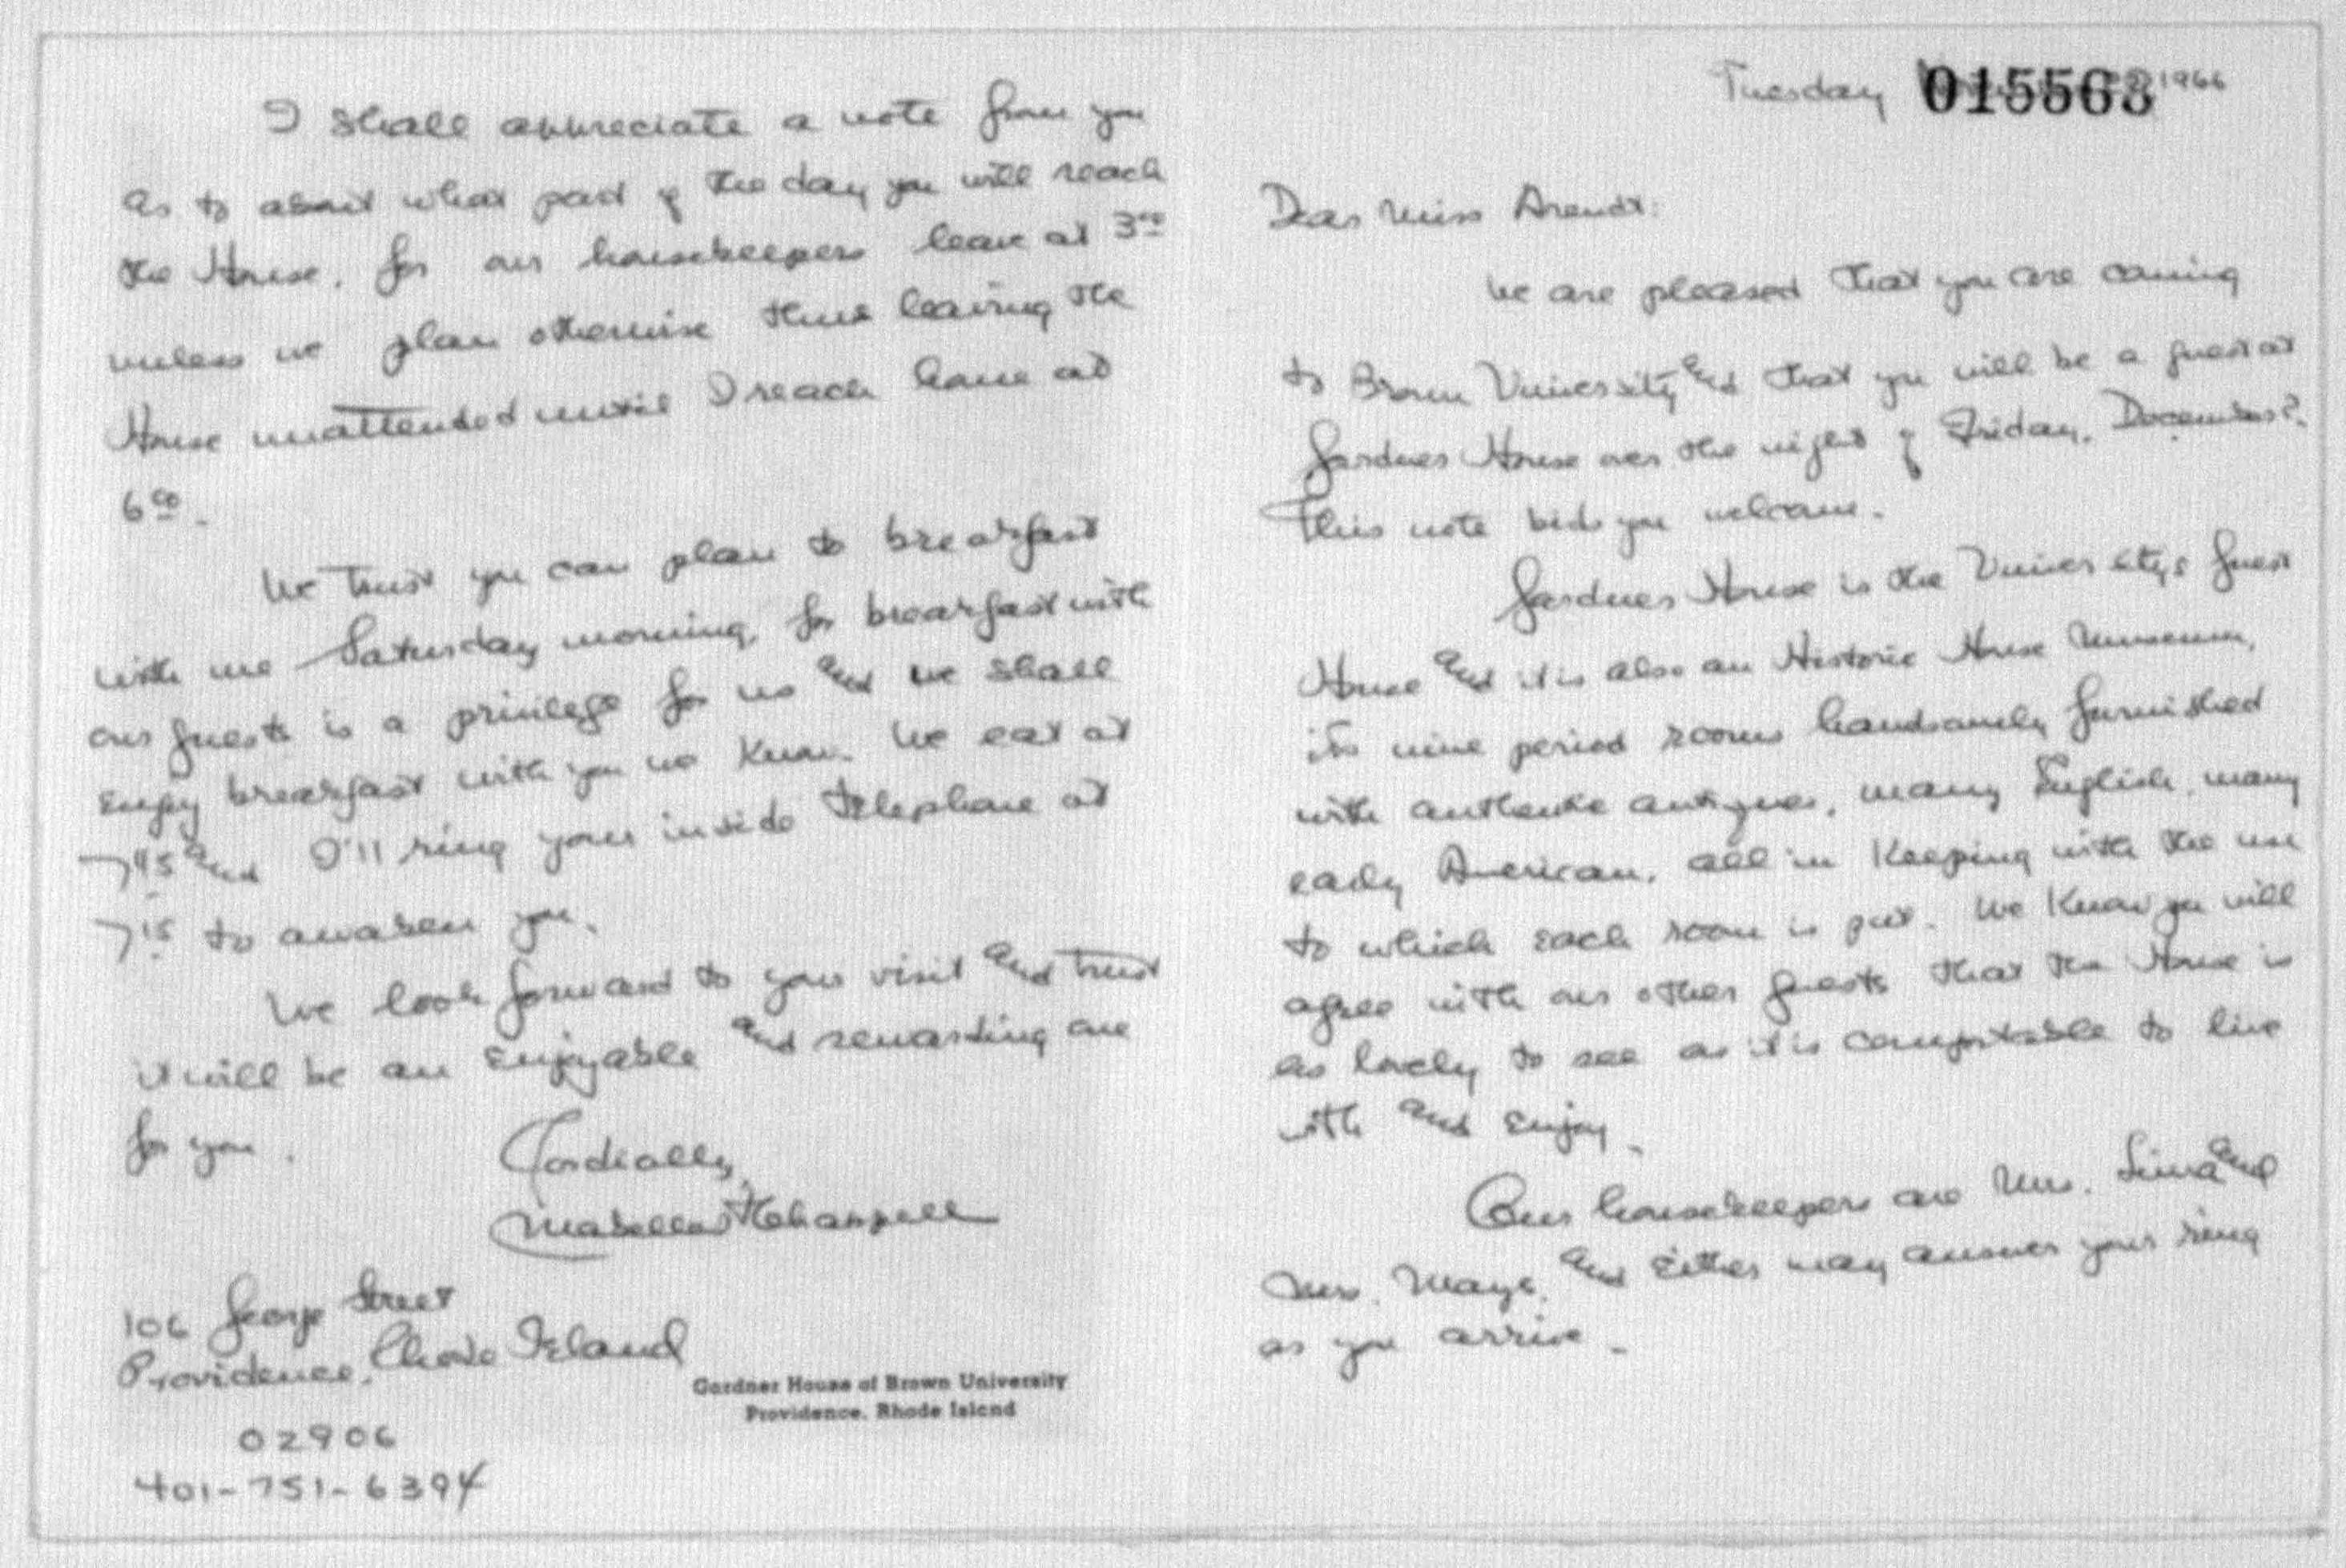 Tuesday 1966
015563
Dear Miss Arendt:
We are pleased that you are coming
to Brown University and that you will be a guest at
Gardner House over the night of Friday, December 2.
This note bids you welcome.
Gardner House is the University's guest
House and it is also an Historic House Museum,
its nine period rooms handsomely furnished
with authentic antiques, many English, many
early American, all in keeping with the use
to which each room is put. We know you will
agree with our other guests that the House is
as lovely to see as it is comfortable to live
with and enjoy.
Our housekeepers are Mrs. Lima and
Mrs. Mays, and either may answer your ring
as you arrive.
I shall appreciate a note from you
as to about what part of the day you will reach
the House, for our housekeepers leave at 300
unless we plan otherwise thus leaving the
House unattended until I reach home at
600.
We trust you can plan to breakfast
with me Saturday morning, for breakfast with
our guests is a privilege for us and we shall
enjoy breakfast with you we know. We eat at
745 and I'll ring your inside telephone at
715 to awaken you.
We look forward to your visit and trust
it will be an enjoyable and rewarding one
for you.
Cordially,
Mabelle Chappell
106 George Street
Providence, Rhode Island
02906
401-751-6394
Gardner House of Brown University
Providence, Rhode Island